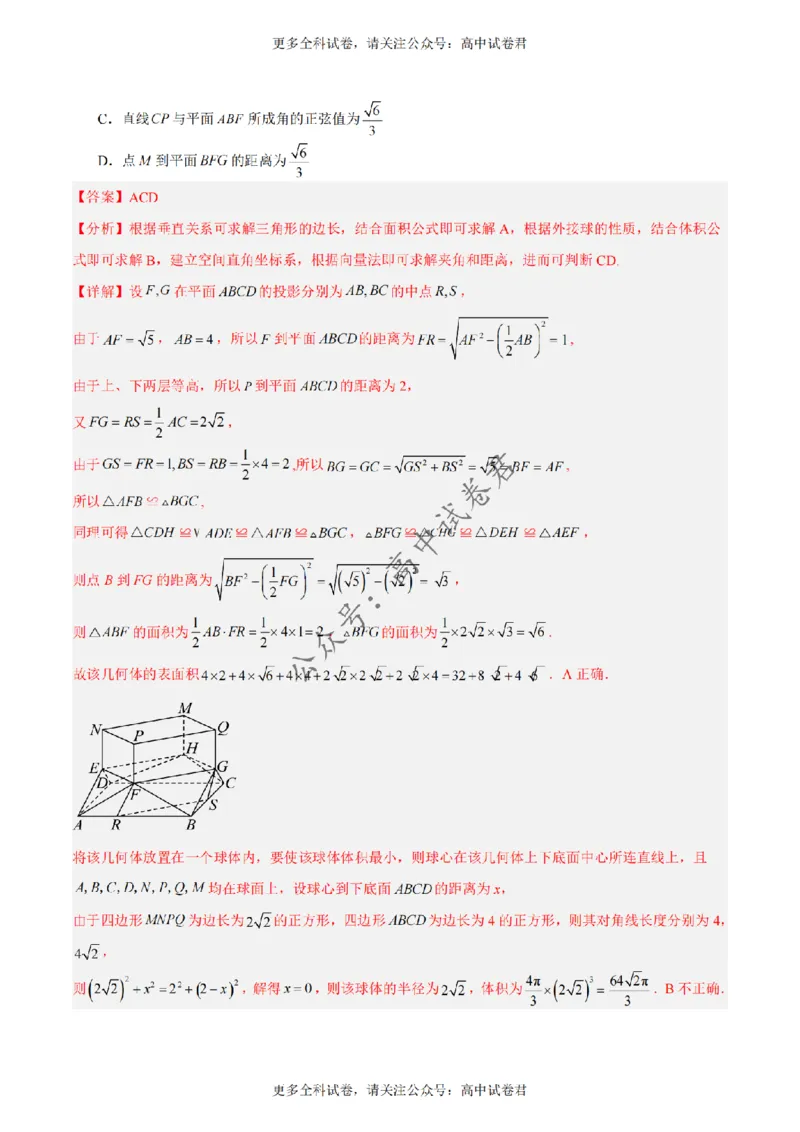 更多全科试卷，请关注公众号：高中试卷君
C．直线CP与平面ABF所成角的正弦值为√6/3
D．点M到平面BFG的距离为√6/3
【答案】ACD
【分析】根据垂直关系可求解三角形的边长，结合面积公式即可求解A，根据外接球的性质，结合体积公
式即可求解B，建立空间直角坐标系，根据向量法即可求解夹角和距离，进而可判断CD.
【详解】设F,G在平面ABCD的投影分别为AB,BC的中点R,S，
由于AF=√5，AB=4，所以F到平面ABCD的距离为FR=√(AF²-(1/2 AB)²)=1，
由于上、下两层等高，所以P到平面ABCD的距离为2，
又FG=RS=1/2 AC=2√2，
由于GS=FR=1,BS=RB=1/2×4=2,所以BG=GC=√(GS²+BS²)=√5=BF=AF，
所以△AFB≌△BGC，
同理可得△CDH≌∨ADE≌△AFB≌△BGC，△BFG≌△CHG≌△DEH≌△AEF，
则点B到FG的距离为√(BF²-(1/2 FG)²)=√((√5)²-(√2)²)=√3，
则△ABF的面积为1/2 AB·FR=1/2×4×1=2，△BFG的面积为1/2×2√2×√3=√6．
故该几何体的表面积4×2+4×√6+4×4+2√2×2√2+2√2×4=32+8√2+4√6．A正确．
M
N
P
Q
H
E
G
D
F
C
S
A
R
B
将该几何体放置在一个球体内，要使该球体体积最小，则球心在该几何体上下底面中心所连直线上，且
A,B,C,D,N,P,Q,M均在球面上，设球心到下底面ABCD的距离为x，
由于四边形MNPQ为边长为2√2的正方形，四边形ABCD为边长为4的正方形，则其对角线长度分别为4，
4√2，
则(2√2)²+x²=2²+(2-x)²，解得x=0，则该球体的半径为2√2，体积为4π/3×(2√2)³=64√2π/3．B不正确．
公众号：高中试卷君
更多全科试卷，请关注公众号：高中试卷君